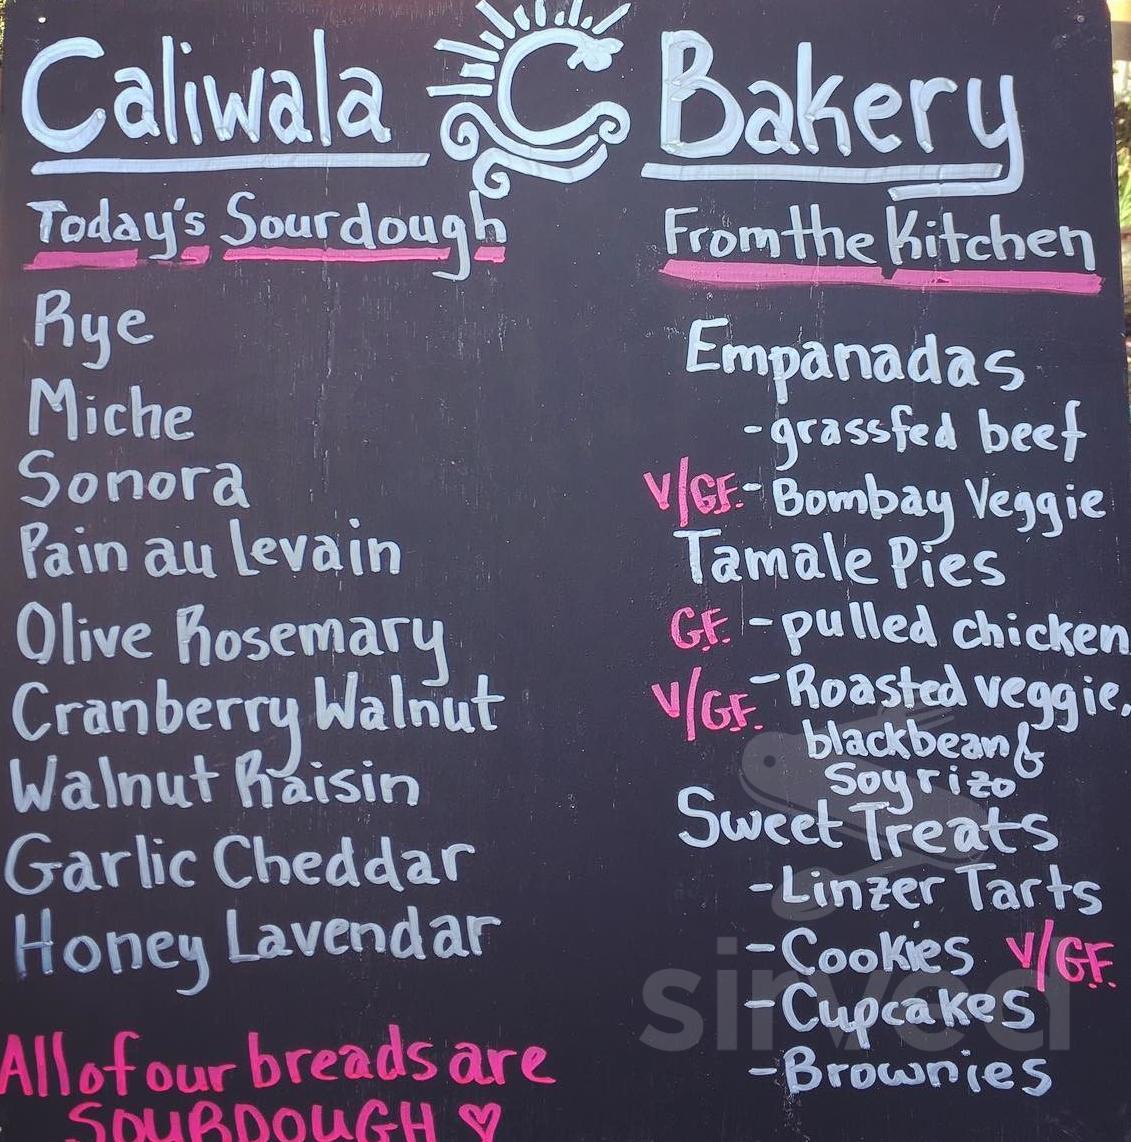 Caliwala C Bakery
Today's Sourdough
Rye
Miche
Sonora
Pain au Levain
Olive Rosemary
Cranberry Walnut
Walnut Raisin
Garlic Cheddar
Honey Lavendar
All of our breads are
SOURDOUGH ♡
From the Kitchen
Empanadas
-grassfed beef
V/GF. - Bombay Veggie
Tamale Pies
GF. - pulled chicken
V/GF. - Roasted veggie,
blackbean &
Soyrizo
Sweet Treats
- Linzer Tarts
- Cookies V/G.F.
- Cupcakes
- Brownies
sirved